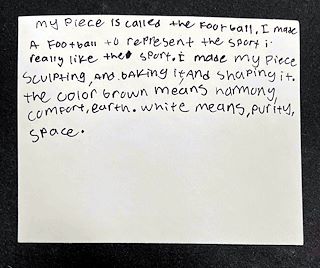 my piece is called the Football. I made
A Football to represent the sport i
really like the sport. I made my piece
sculpting, and baking it and shaping it.
the color brown means harmony,
comfort, earth. white means, purity,
space.